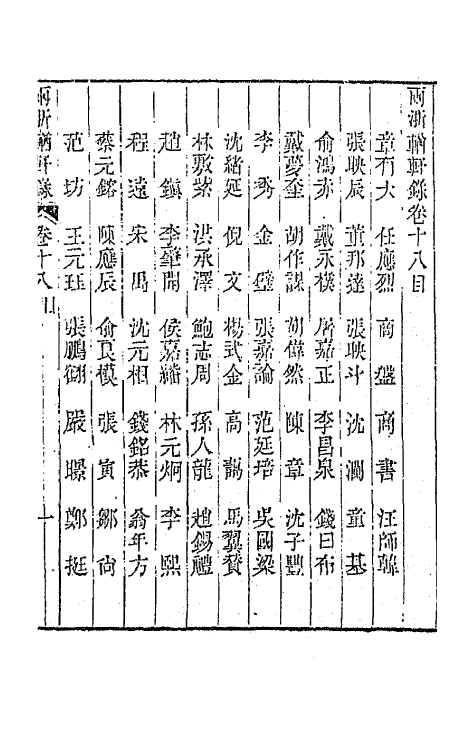 兩浙輶軒錄卷十八目
章有大 任應烈 商盤 商書 汪師韓
張映辰 董邦達 張映斗 沈瀾 童基
俞鴻亦 戴永樸 屠嘉正 李昌泉 錢曰布
戴夢奎 胡作謀 胡偉然 陳章 沈子豐
李秀 金燈 張嘉論 范延培 吳國梁
沈緒延 倪文 楊武金 高鷫 馬翼贊
林敦紫 洪承澤 鮑志周 孫人龍 趙錫禮
趙鎮 李肇開 侯嘉繙 林元炯 李熙
程遠 宋禺 沈元相 錢銘恭 翁年方
蔡元鎔 陳應辰 俞良模 張寅 鄒尚
范坊 王元珏 張鵬翮 嚴璟 鄭挺
兩浙輶軒錄 卷十八目 一